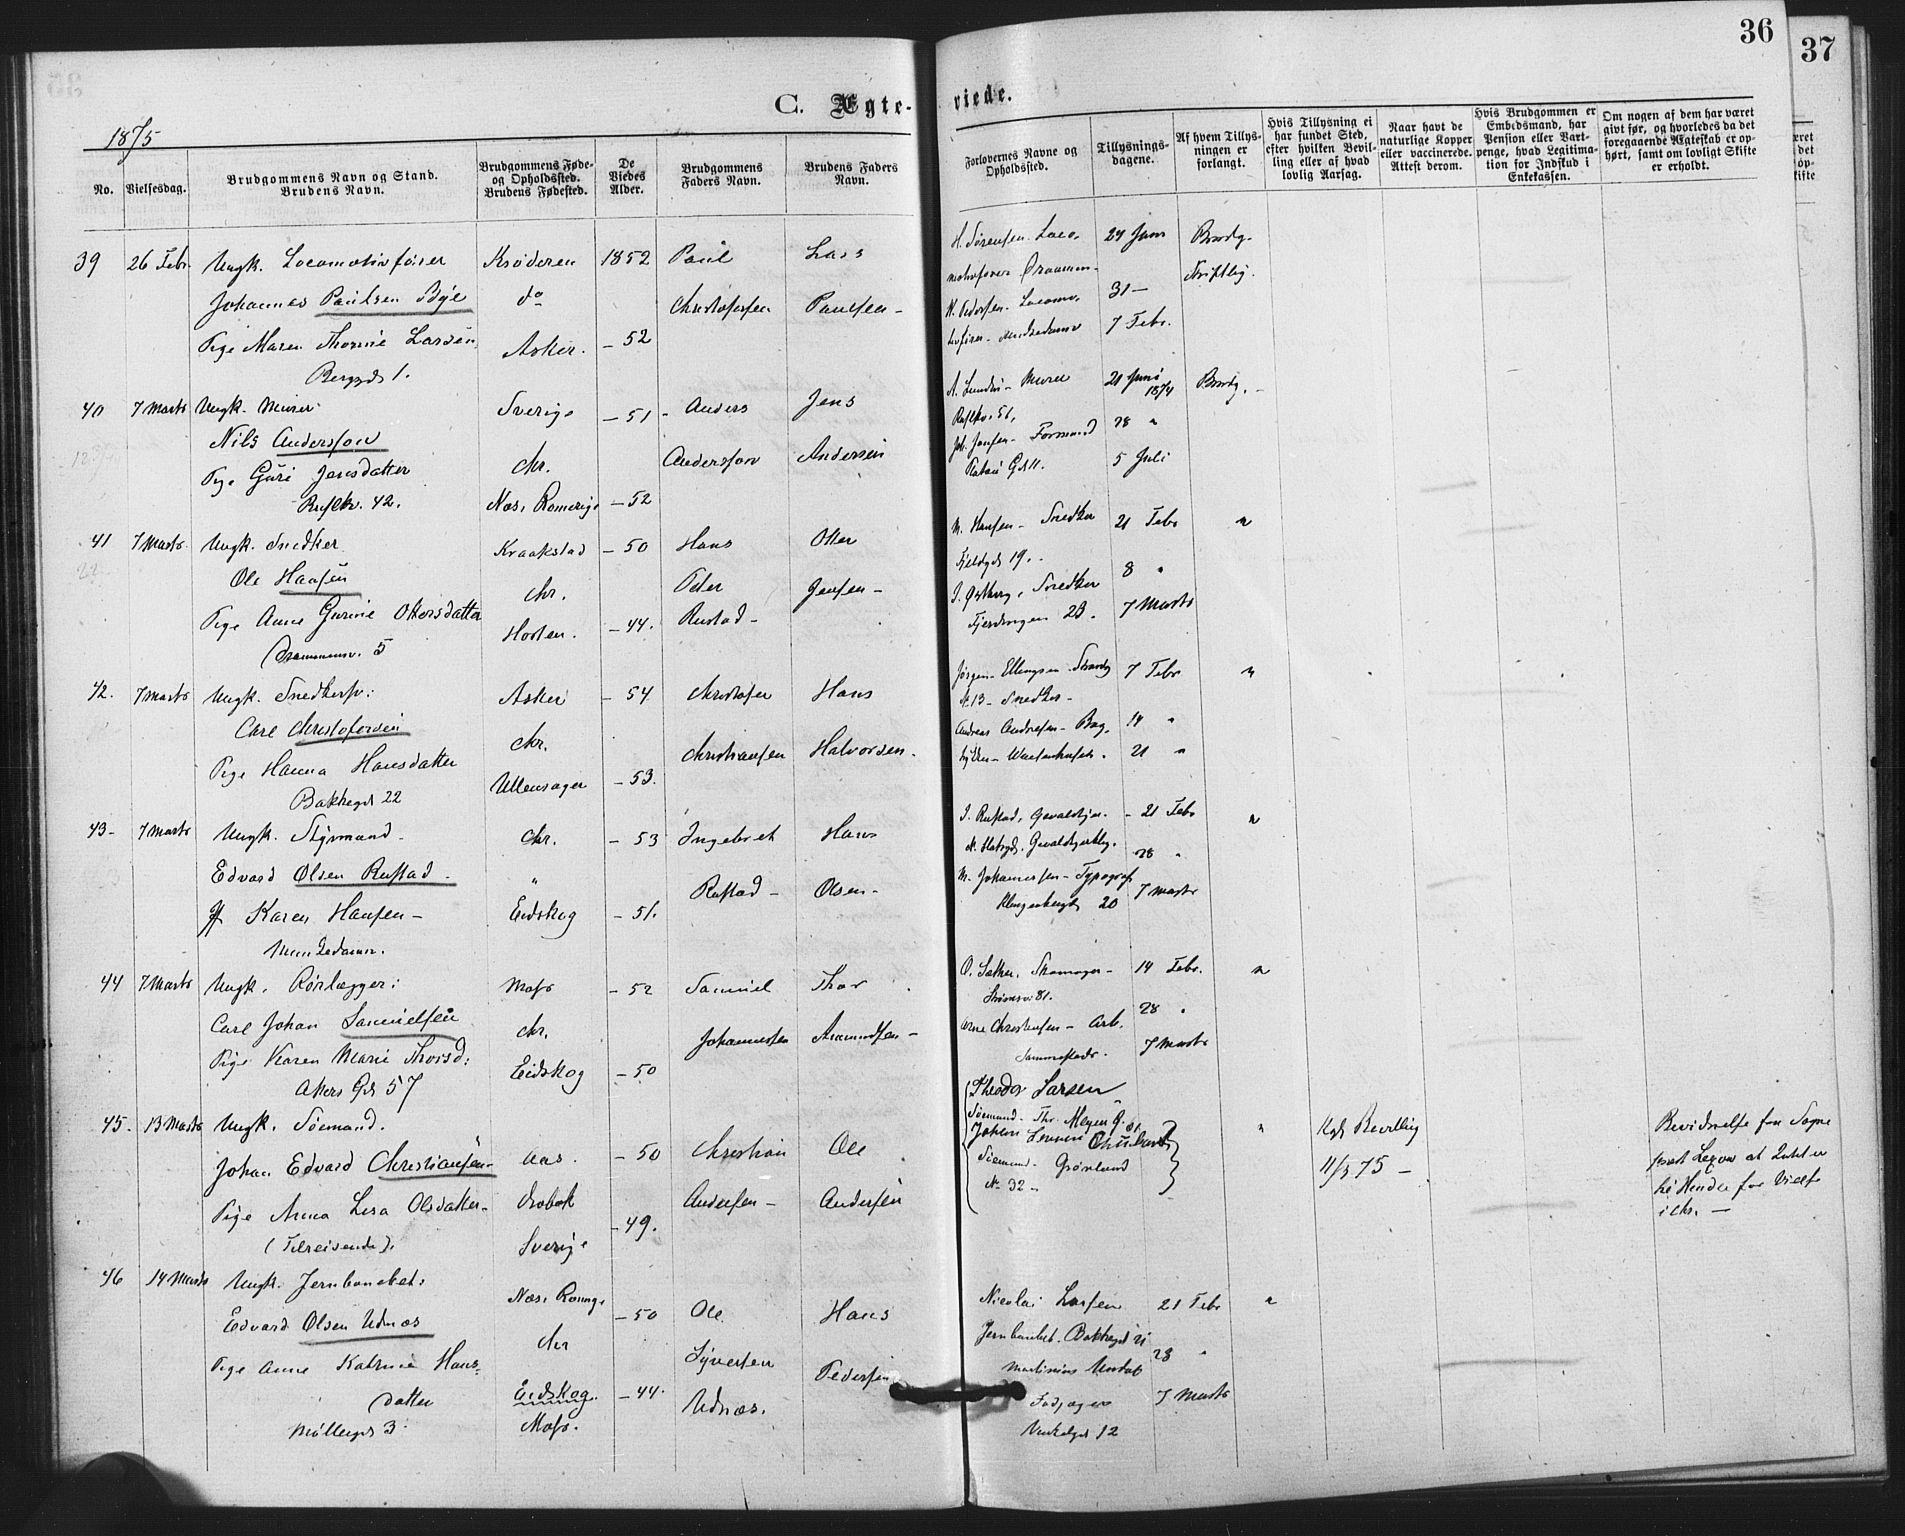 36
37
C. Ægte-
viede.
1875
No.
Vielsesdag.
Brudgommens Navn og Stand.
Brudens Navn.
Brudgommens Føde-
og Opholdssted.
Brudens Fødested.
De
Viedes
Alder.
Brudgommens
Faders Navn.
Brudens Faders
Navn.
Forlovernes Navne og
Opholdssted.
Tillysnings-
dagene.
Af hvem Tillys-
ningen er
forlangt.
Hvis Tillysning ei
har fundet Sted,
efter hvilken Bevil-
ling eller af hvad
lovlig Aarsag.
Naar havt de
naturlige Kopper
eller vaccinerede.
Attest derom.
Hvis Brudgommen er
Embedsmand, har
Pension eller Vart-
penge, hvad Legitima-
tion for Indskud i
Enkekassen.
Om nogen af dem har været
givt før, og hvorledes da det
foregaaende Ægteskab er op-
hørt, samt om lovligt Skifte
er erholdt.
39 26 Febr. Ungk. Locomotivfører Krøderen 1852 Paul Lars
Johannes Paulsen Bye do Christofersen Paulsen -
Pige Maren Thorine Larsen Asker. - 52
Bergsgd 1.
H. Sørensen Loco,
motivfører Drammen-
N. Pedersen. Locomo,
24 Janr
31 -
7 Febr.
Brudg.
Skriftlig.
40 7 Marts Ungk. Murer Sverige - 51 - Anders Jens
Nils Andersson Chr. Andersson Andersen
Pige Guri Jensdatter
Ruselkv. 42. Næs, Romerige - 52
A. Lundin - Murer 21 Juni 1874 Brudg. -
Ruselkv. 51,
Joh. Jansen - Formand 28 "
Gd 11. 5 Juli
41 7 Marts Ungk. Snedker Kraakstad - 50 Hans Otter
Ole Hansen Chr. Peder Jensen -
Pige Anne Gurine Ottersdatter - 44. Rustad -
Drammensv. 5
M. Hansen - Snedker 21 Febr "
19. -
Snedker 8 "
Fjerdingen 23. 7 Marts
42. 7 Marts Ungk. Snedkersv: Asker - 54 Christofer Hans
Carl Christofersen Chr. Christiansen Halvorsen.
Pige Hanna Hansdatter Ullensager - 53.
Bakkegd 22
Jørgen Ellingsen 7 Febr "
No 13 - Snedker -
Andreas Andresen - 14 "
21 "
43 - 7 Marts Ungk. Styrmand - Chr. - 53 Ingebret Hans
Edvard Olsen Rustad - " Rustad - Olsen -
Karen Hansen - Eidskog - 51.
Munkedamv.
J. Rustad, - 21 Febr "
28 "
M. Johannesen - Typograf 7 Marts
Klingenberggd 20
44 7 Marts Ungk. Rørlægger: Moss - 52 Samuel Thor
Carl Johan Samuelsen Chr. Johannesen Aamundsen -
Pige Karen Marie Thorsd: Eidskog - 50
Akers Gd 57
O. Sæther, Skomager - 14 Febr. "
81. 28 "
Arne Christensen - Arb. 7 Marts
Sammesteds.
45. 13 Marts Ungk. Sømand.
Johan Edvard Christiansen - Aas. - 50 Christian Ole
Pige Anna Lisa Olsdatter - Drøbak Andersen - Andersen
(Tilreisende). Sverige - 49.
Theodor Larsen
Sømand. Thv. Meyers G. 81
Sømand. Grønland
No 32 -
"
Kgl. Bevilling
11/3 75 -
Bevidnelse fra Sogne
præst
til Hinder for Vielse
i Chr. -
46 14 Marts Ungk. Jernbanebet: Næs, Romge - 50 Ole Hans
Edvard Olsen Udnæs Chr Syversen Pedersen
Pige Anne Katrine Hans- Eidskog. - 44. Udnæs.
datter Moss.
Møllergd 3.
Nicolai Larsen 21 Febr "
Jernbanbet. Bakkegd 21
28 "
7 Marts
12